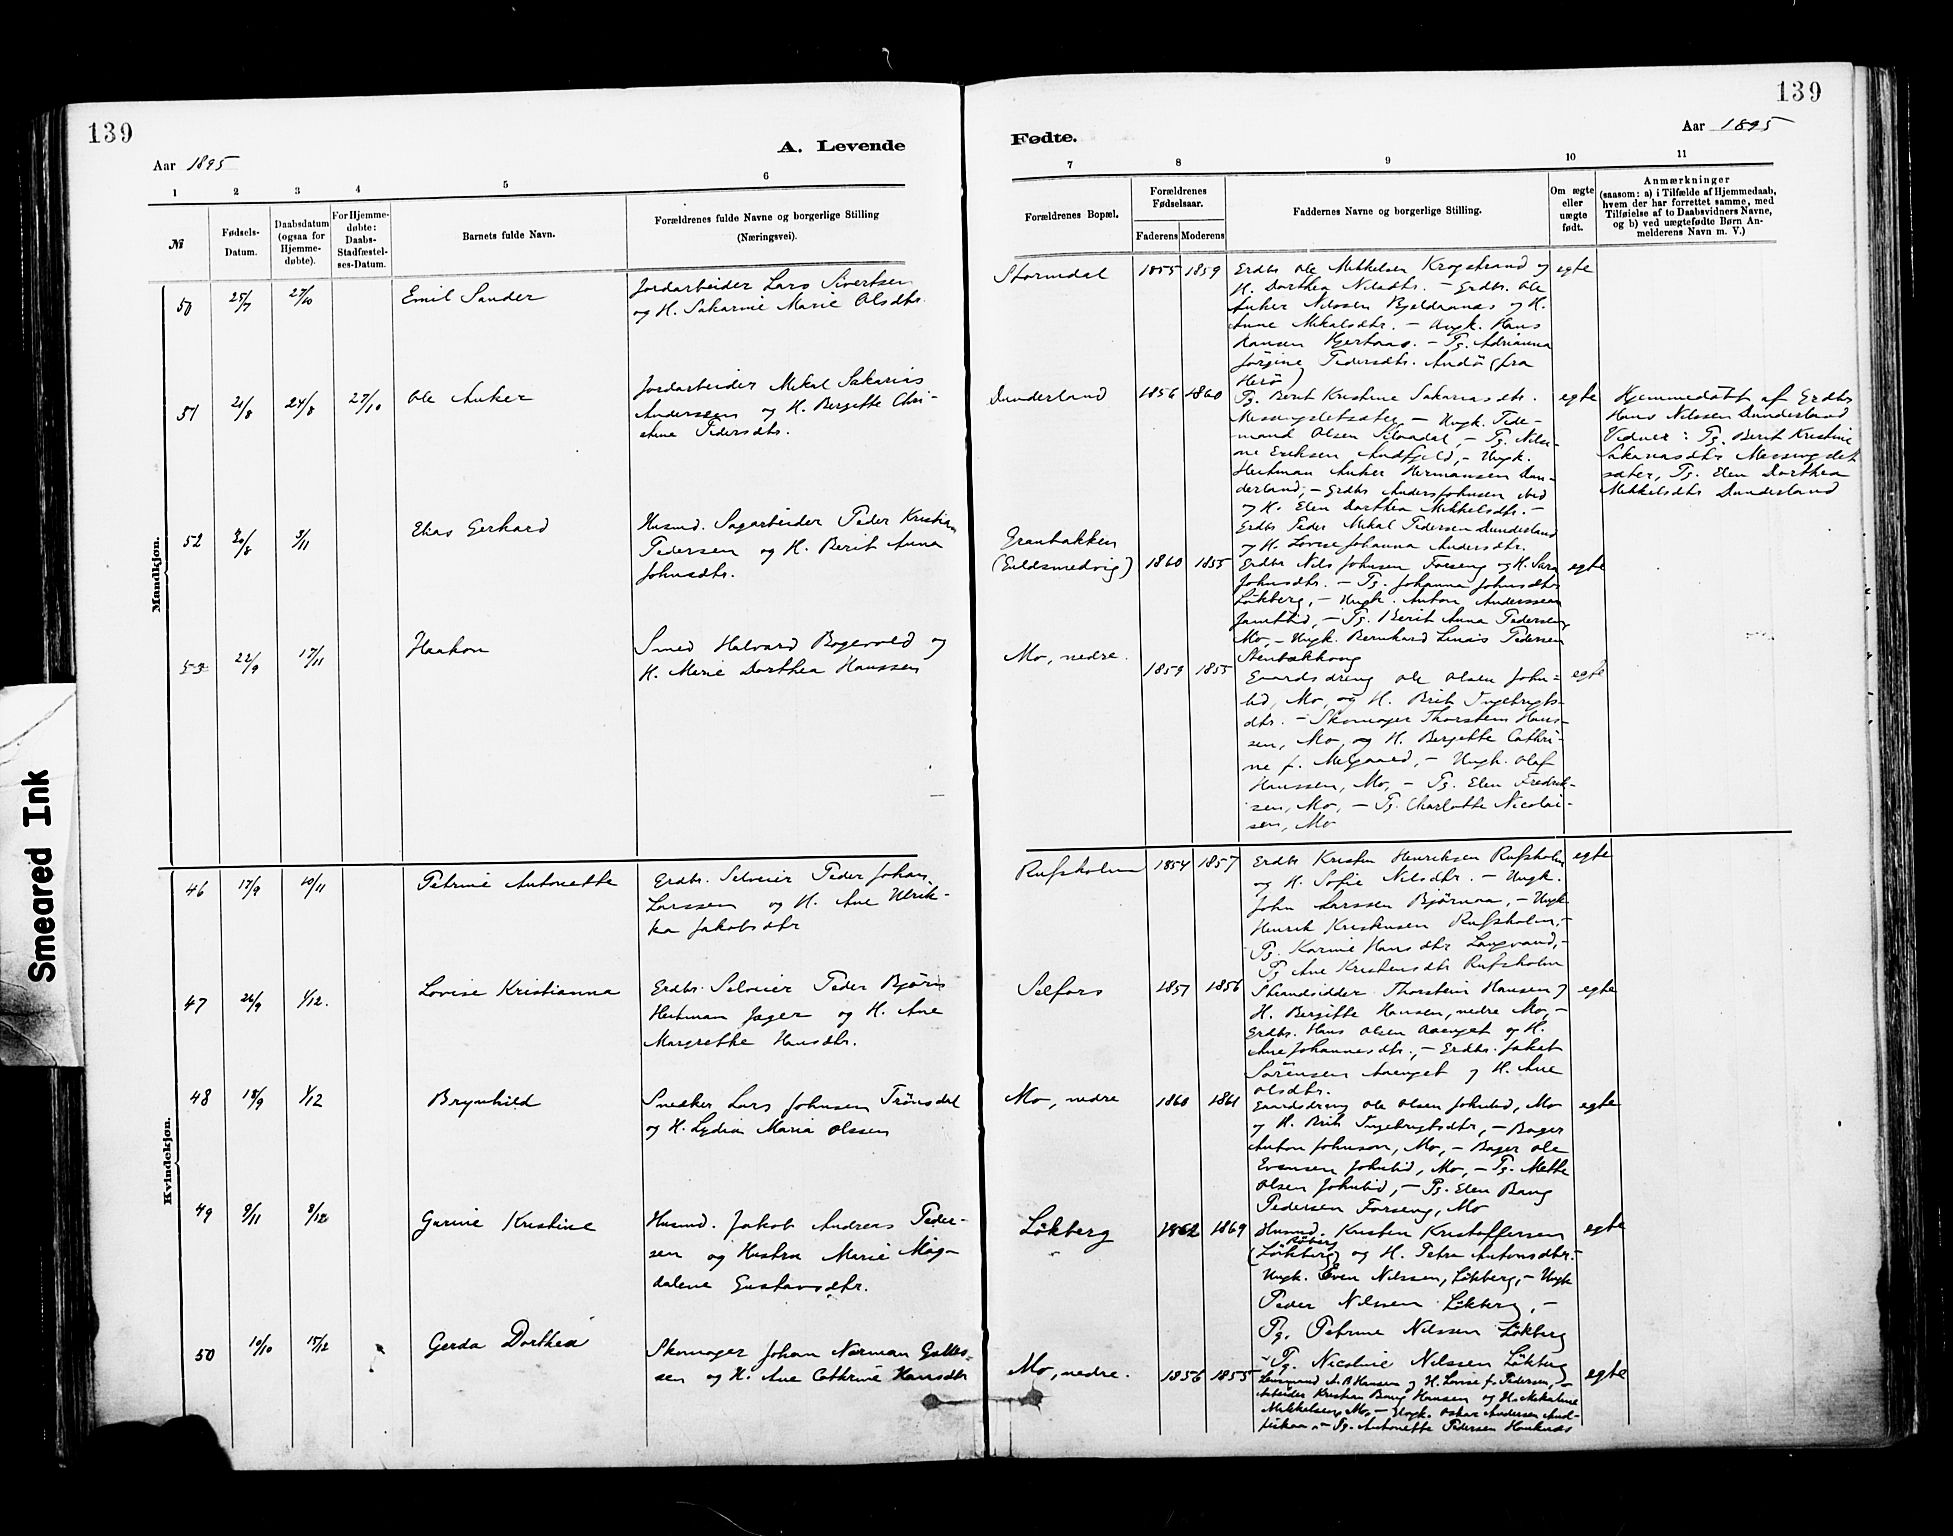 139
139
A. Levende
Fødte.
Aar 1895
Aar 1895
1 2 3 4 5 6
7 8 9 10 11
№
Fødsels-
Datum.
Daabsdatum
(ogsaa for
Hjemme-
døbte).
For Hjemme-
døbte:
Daabs-
Stadfæstel-
ses-Datum.
Barnets fulde Navn.
Forældrenes fulde Navne og borgerlige Stilling
(Næringsvei).
Forældrenes Bopæl.
Forældrenes
Fødselsaar.
Faderens
Moderens
Faddernes Navne og borgerlige Stilling.
Om ægte
eller
uægte
født.
Anmærkninger
(saasom: a) i Tilfælde af Hjemmedaab,
hvem der har forrettet samme, med
Tilføielse af to Daabsvidners Navne,
og b) ved uægtefødte Børn An-
melderens Navn m. V.)
Mandkjøn.
50 25/7 27/10 Emil Sander
Jordarbeider Lars Sivertsen
og H. Sakarine Marie Olsdtr.
Stormdal 1855 1859
Erdbr. Ole Mikkelsen Krogstrand og
H. Dorthea Nilsdtr. – Erdbr. Ole
Anker Nilssen og H.
Anne Mikalsdtr. – Ungk. Hans
Hansen – Pg. Adrianna
Jörgine Pedersdtr. Andö (fra
Herö)
egte
51 21/8 24/8 27/10 Ole Anker
Jordarbeider Mikal Sakarias
Anderssen og H. Bergitte Chri-
stine Pedersdtr.
Dunderland 1856 1860
Pg. Berit Kristine Sakariasdtr.
– Ungk. Pede-
mand Olsen – Pg. Nils-
ne Eriksen Andfjeld, – Ungk.
Heitman Anker Hermansen Dun-
derland, – Erdbr. Anders Johnsen ibid
og H. Elen Dorthea Mikkelsdtr. –
Erdbr. Peder Mikal Pedersen Dunderland
og H. Lovise Johanna Andersdtr.
egte
Hjemmedöbt af Erdbr.
Hans Nilssen Dunderland
Vidner: Pg. Berit Kristine
Sakariasdtr. Messingslet
sæter, Pg. Elen Dorthea
Mikkelsdtr. Dunderland
52 20/8 3/11 Elias Gerhard
Husmd. Sagarbeider Peder Kristian
Pedersen og H. Berit Anna
Johnsdtr.
Granbakken
(Guldsmedvig) 1860 1855
Erdbr. Nils Johnsen Forseng og H. Sara
Johnsdtr. – Pg. Johanna Johnsdtr.
Lökberg, – Ungk. Anton Anderssen
Jamtlid, – Pg. Berit Anna Pedersen,
Mo, – Ungk. Bernhard Linäs Pedersen
Stenbækhaug
egte
53 22/9 17/11 Haakon
Smed Halvard Bogevold og
H. Marie Dorthea Hanssen
Mo, nedre.
1859 1855
Gaardsdreng Ole Olsen John-
lid, Mo, og H. Brit Ingebrigts-
dtr. – Skomager Thorstein Hans-
sen, Mo og H. Bergitte Cathri-
ne f. Melgaard, – Ungk. Olaf
Hanssen, Mo, – Pg. Elen Fredrik-
sen, Mo, – Pg. Charlotte Nicolai-
sen, Mo
egte
Kvindekjøn.
46 17/9 10/11 Petrine Antonette
Erdbr. Selveier Peder Johan
Larssen og H. Ane Ulrik-
ka Jakobsdtr
Rufsholm 1854 1857
Erdbr. Kristen Henriksen Rufsholm
og H. Sofie Nilsdtr. – Ungk.
John Larssen Björnaa, – Ungk.
Henrik Kristensen Rufsholm, –
Pg. Karine Hansdtr Langvand, –
Pg. Ane Kristensdtr Rufsholm
egte
47 26/9 1/12. Lovise Kristianna
Erdbr. Selveier Peder Björn
Heitman Jæger og H. Ane
Margrethe Hansdtr.
Selfors 1857 1856
Strandsidder Thorstein Hansen og
H. Bergitte Hansen, nedre Mo, –
Erdbr. Hans Olsen Aaenget og H.
Ane Johannesdtr., – Erdbr. Jakob
Sörensen Aaenget og H. Ane
Olsdtr.
egte
48 18/9 1/12 Brynhild
Snedker Lars Johnsen Trönsdal
og H. Lydia Maria Olssen
Mo, nedre 1860 1861
Gaardsdreng Ole Olsen Johnlid, Mo
og H. Brit Ingebrigtsdtr, – Bager
Anton Johnson, Mo, – Bager Ole
Evensen Johnlid, Mo, – Pg. Mette
Olsen Johnlid, – Pg. Elen Bang
Pedersen Forseng, Mo
egte
49 9/11 8/12 Gurine Kristine
Husmd. Jakob Andreas Peder-
sen og Hustru Marie Mag-
dalene Gustavsdtr.
Lökberg 1862 1869
Husmd. Kristen Kristoffersen
(Lökberg) og H. Petra Antonsdtr. –
Ungk. Even Nilssen, Lökberg, – Ungk
Peder Nilssen Lökberg, –
Pg. Petrine Nilssen Lökberg
– Pg. Nicoline Nilssen Lökberg
egte
50 10/10 15/12 Gerda Dorthea
Skomager Johan Norman
sen og H. Ane Cathrine Hansdtr
Mo, nedre. 1856 1855
A. B. Hansen og H. Lovise f. Pedersen, –
Arbeider Kristian Bang Hansen og H. Mikaline
Mikkelsen, Mo, – Ungk. Oskar Andersen And-
fiskaa, – Pg. Antonette Pedersen Hauknes
egte
Smeared Ink